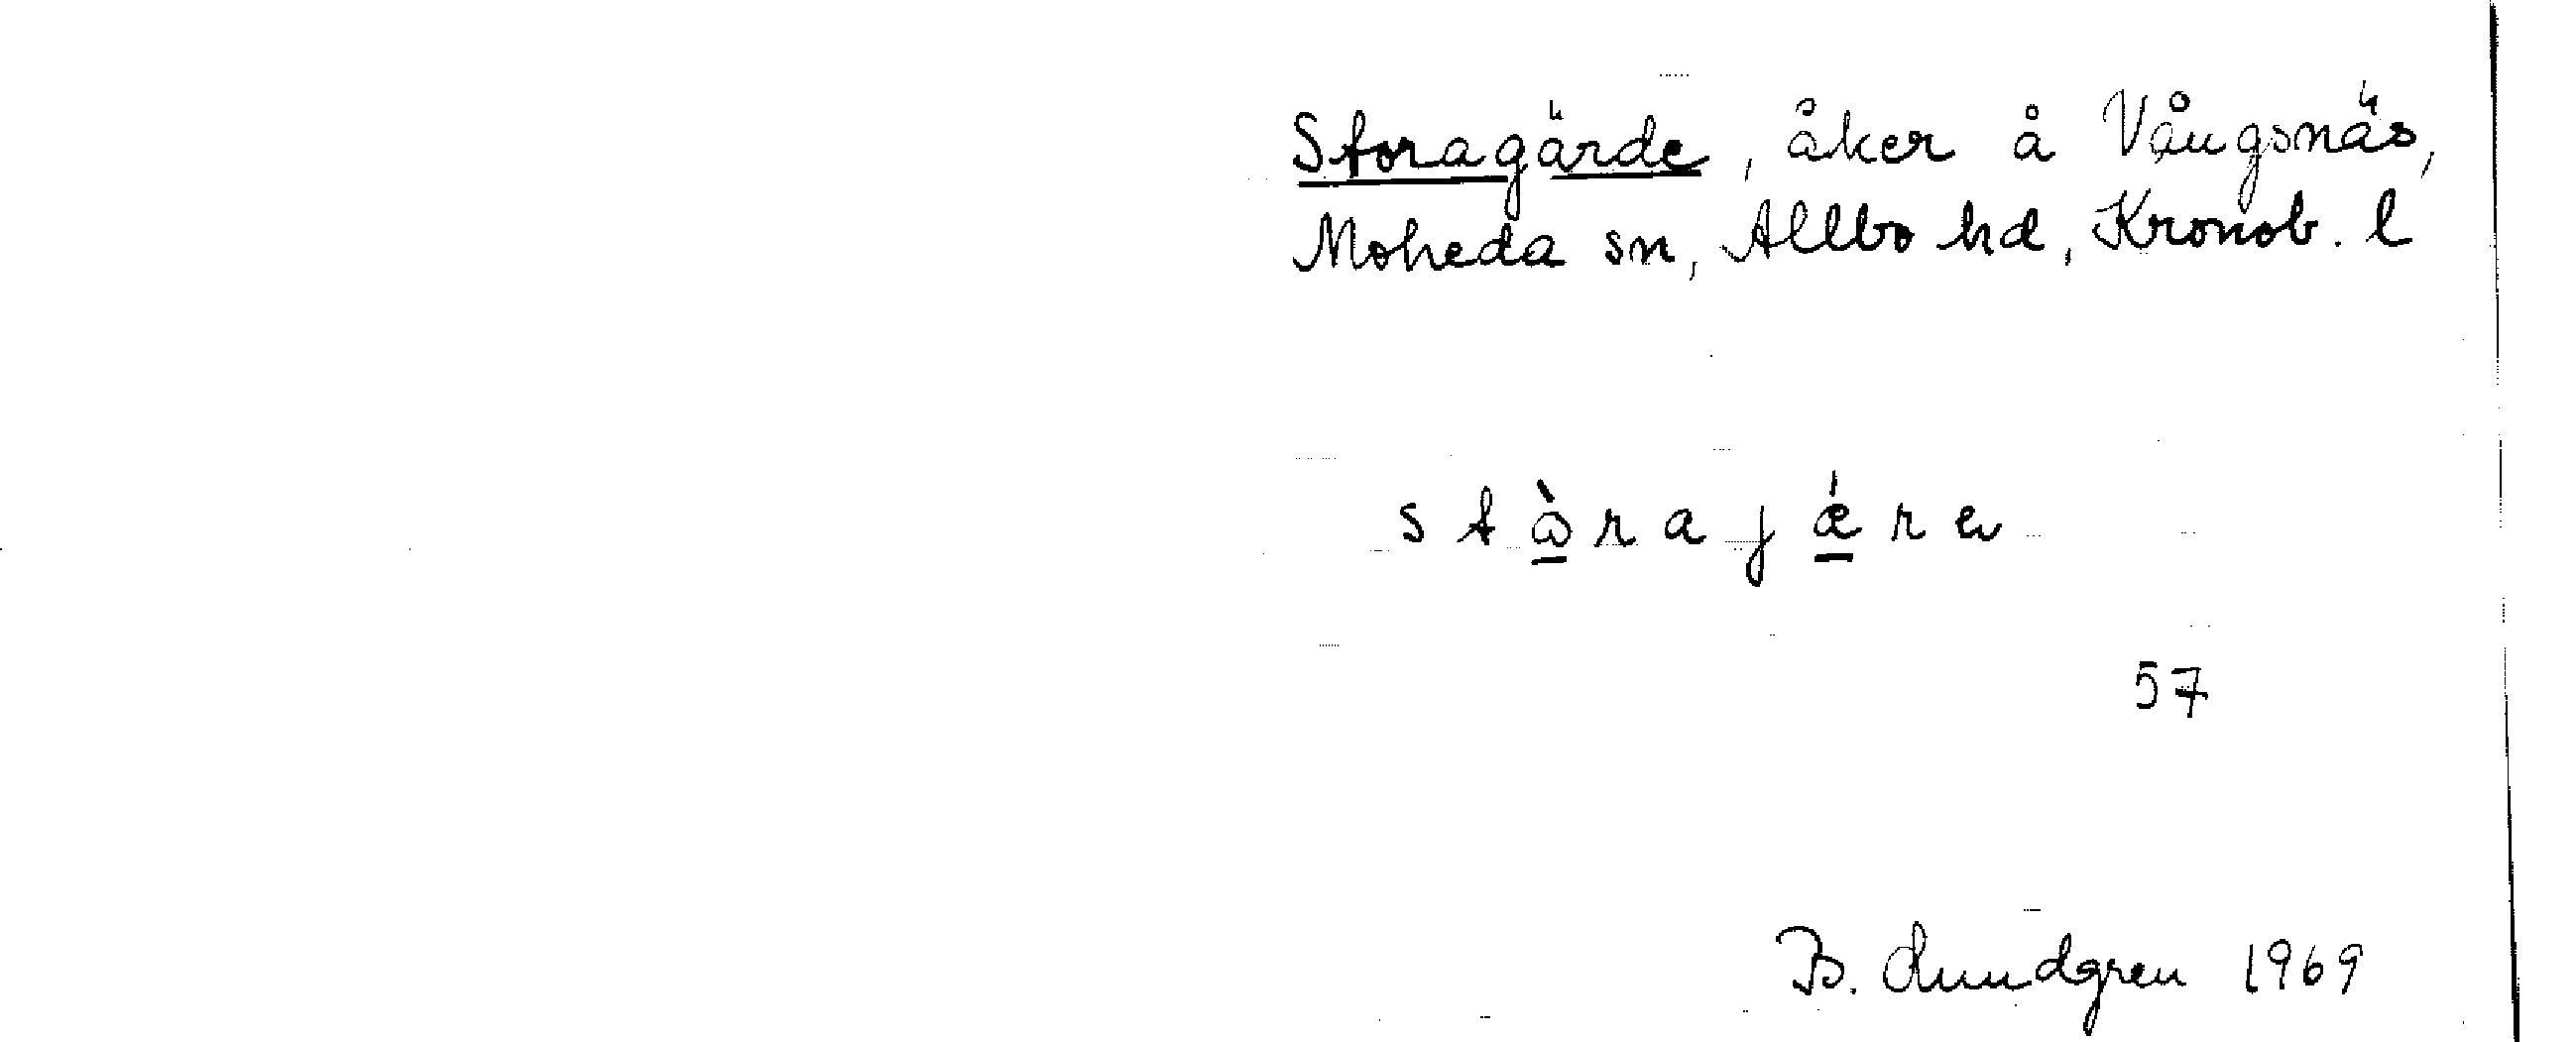 Storagärde, åker å Vångsnäs,
Moheda sn, Allbo hd, Kronob. l
57
B. Lundgren 1969